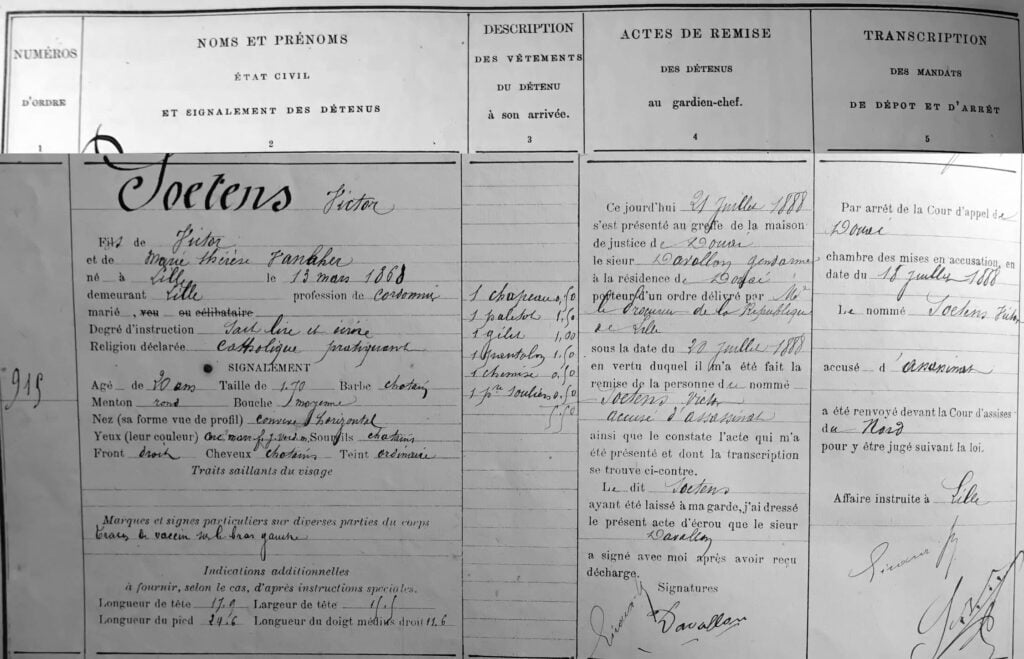 NUMÉROS
D'ORDRE
1
NOMS ET PRÉNOMS
ÉTAT CIVIL
ET SIGNALEMENT DES DÉTENUS
2
DESCRIPTION
DES VÊTEMENTS
DU DÉTENU
à son arrivée.
3
ACTES DE REMISE
DES DÉTENUS
au gardien-chef.
4
TRANSCRIPTION
DES MANDATS
DE DÉPOT ET D'ARRÊT
5
915
Soetens Victor
Fils de Victor
et de Marie Thérèse
né à Lille le 13 mars 1868
demeurant Lille profession de cordonnier
marié, veu ou célibataire
Degré d'instruction Sait lire et écrire
Religion déclarée Catholique pratiquant
SIGNALEMENT
Agé de 20 ans Taille de 1.70 Barbe chatain
Menton rond Bouche moyenne
Nez (sa forme vue de profil) convexe horizontal
Yeux (leur couleur) Sourcils chatains
Front droit Cheveux chatains Teint ordinaire
Traits saillants du visage
Marques et signes particuliers sur diverses parties du corps
traces de vaccin sur le bras gauche
Indications additionnelles
à fournir, selon le cas, d'après instructions spéciales.
Longueur de tête 17.9 Largeur de tête 15.5
Longueur du pied 24.6 Longueur du doigt médius droit 11.6
1 chapeau 0,50
1 paletot 1.50
1 gilet 1,00
1 pantalon 1.50
1 chemise 0.50
1 pre souliers 0.50
5.50
Ce jourd'hui 21 Juillet 1888
s'est présenté au greffe de la maison
de justice de Douai
le sieur Davallon gendarme
à la résidence de Douai
porteur d'un ordre délivré par Mr
le Procureur de la République
de Lille
sous la date du 20 Juillet 1888
en vertu duquel il m'a été fait la
remise de la personne du nommé
Soetens Victor
accusé d'assassinat
ainsi que le constate l'acte qui m'a
été présenté et dont la transcription
se trouve ci-contre.
Le dit Soetens
ayant été laissé à ma garde, j'ai dressé
le présent acte d'écrou que le sieur
Davallon
a signé avec moi après avoir reçu
décharge.
Signatures
Davallon
Par arrêt de la Cour d'appel de
Douai
chambre des mises en accusation, en
date du 18 juillet 1888
Le nommé Soetens Victor
accusé d'assassinat
a été renvoyé devant la Cour d'assises
du Nord
pour y être jugé suivant la loi.
Affaire instruite à Lille